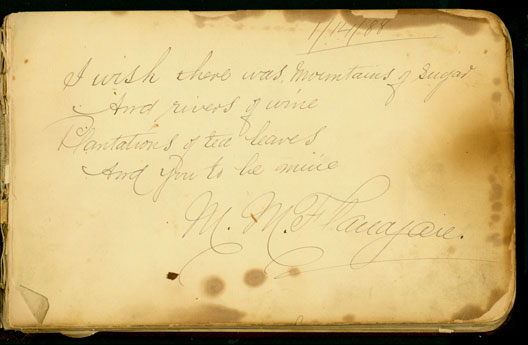 1/14/88
I wish there was Mountains of Sugar
And rivers of wine
Plantations of tea leaves
And you to be mine
M. M. Flanagan.